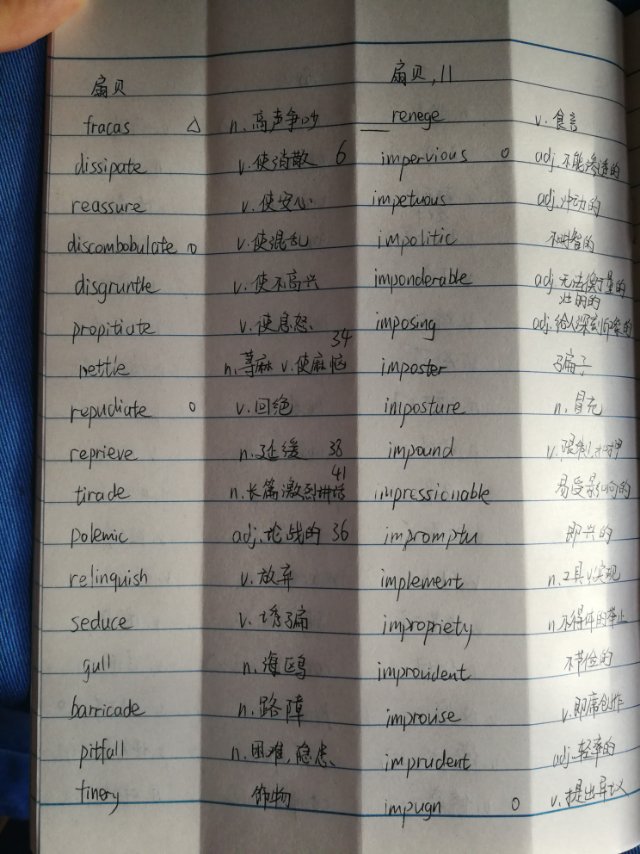 扇贝 扇贝，11
fracas △ n. 高声争吵 renege v. 食言
dissipate v. 使消散 6 impervious o adj. 不能渗透的
reassure v. 使安心 impetuous adj. 冲动的
discombobulate o v. 使混乱 impolitic 不明智的
disgruntle v. 使不高兴 imponderable adj. 无法衡量的
propitiate v. 使息怒 imposing adj. 给人深刻印象的
34
nettle n. 荨麻 v. 使麻恼 imposter 骗子
repudiate o v. 回绝 imposture n. 冒充
reprieve n. 延缓 38 impound
41
tirade n. 长篇激烈讲话 impressionable 易受影响的
polemic adj. 论战的 36 impromptu 即兴的
relinquish v. 放弃 implement n. 工具 v. 实现
seduce v. 诱骗 impropriety n. 不得体的举止
gull n. 海鸥 improvident 不节俭的
barricade n. 路障 improvise v. 即席创作
pitfall n. 困难，隐患 imprudent adj. 轻率的
finery 饰物 impugn o v. 提出异议